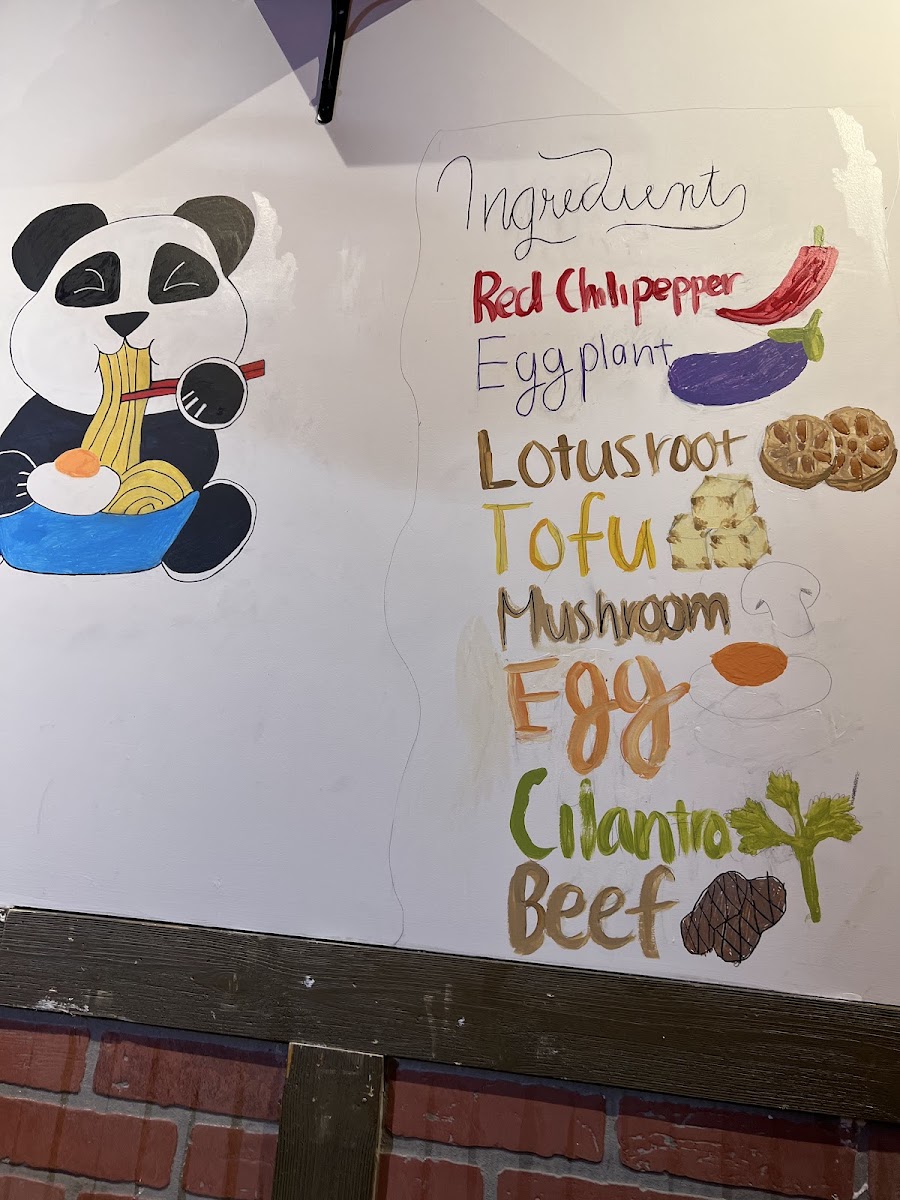 Ingredients
Red Chilipepper
Eggplant
Lotusroot
Tofu
Mushroom
Egg
Cilantro
Beef